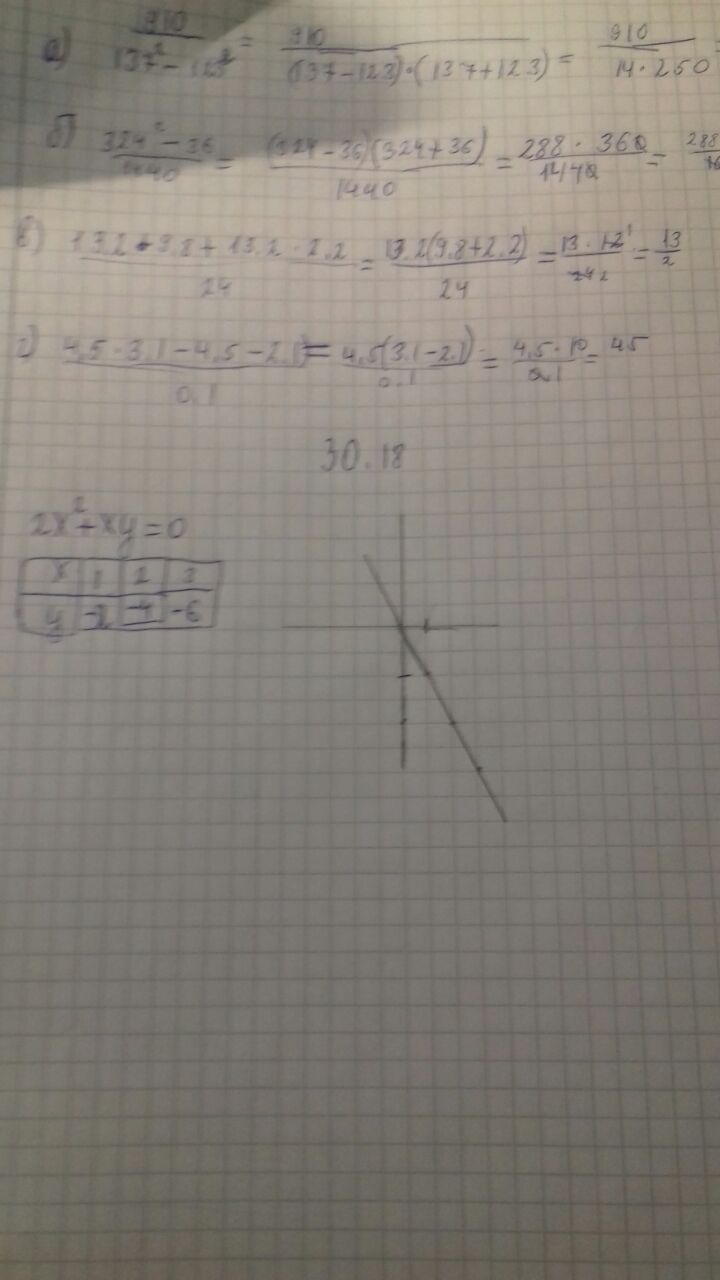 а) 910 / 137² - 123² = 910 / (137-123)·(137+123) = 910 / 14·260 =
б) 324² - 36 / 1440 = (324-36)(324+36) / 1440 = 288·360 / 1440 = 288
в) 13.2·9.8+13.2·2.2 / 24 = 13.2(9.8+2.2) / 24 = 13·12 1 / 24 2 = 13 / 2
г) 4,5·3.1-4,5-2.1) / 0.1 = 4,5(3.1-2.1) / 0.1 = 4,5·10 / 0.1 = 45
30.18
2x²+xy=0
x 1 2 3
y -2 -4 -6